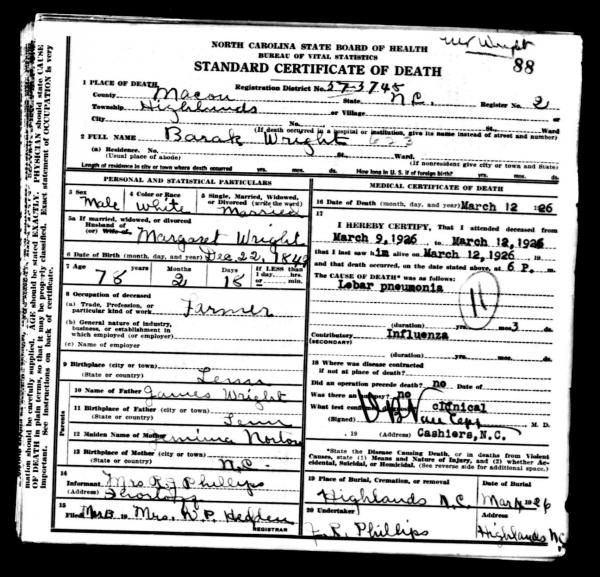 W Wright
88
NORTH CAROLINA STATE BOARD OF HEALTH
BUREAU OF VITAL STATISTICS
STANDARD CERTIFICATE OF DEATH
1 PLACE OF DEATH Registration District No. 57-3745
County Macon State N.C. Register No. 2
Township Highlands or Village
City St., Ward
(If death occurred in a hospital or institution, give its name instead of street and number)
2 FULL NAME Barak Wright 623
(a) Residence. No. St., Ward.
(Usual place of abode) (If nonresident give city or town and State)
Length of residence in city or town where death occurred yrs. mos. ds. How long in U. S. if of foreign birth? yrs. mos. ds.
PERSONAL AND STATISTICAL PARTICULARS
3 Sex 4 Color or Race 5 Single, Married, Widowed, or Divorced (write the word)
Male White Married
5a If married, widowed, or divorced
Husband of
(or) Wife of Margaret Wright
6 Date of Birth (month, day, and year) Dec 22, 1849
7 Age years Months Days If LESS than 1 day, hrs. or min.
76 2 18
8 Occupation of deceased
(a) Trade, Profession, or particular kind of work Farmer
(b) General nature of industry, business, or establishment in which employed (or employer)
(c) Name of employer
9 Birthplace (city or town)
(State or country) Tenn
10 Name of Father James Wright
11 Birthplace of Father (city or town)
(State or country) Tenn
12 Maiden Name of Mother Jemima Norton
13 Birthplace of Mother (city or town)
(State or country) N.C.
Parents
14
Informant Mrs R J Phillips
(Address)
15
Filed 19 Mrs. W. P. Hedden
REGISTRAR
MEDICAL CERTIFICATE OF DEATH
16 Date of Death (month, day, and year) March 12 1926
17
I HEREBY CERTIFY, That I attended deceased from
March 9, 1926 to March 12, 1926
that I last saw him alive on March 12, 1926, 19
and that death occurred, on the date stated above, at 6 P. m.
The CAUSE OF DEATH* was as follows:
Lobar pneumonia
11
(duration) yrs. mos. 3 ds.
Contributory Influenza
(SECONDARY)
(duration) yrs. mos. ds.
18 Where was disease contracted
if not at place of death?
Did an operation precede death? no Date of
Was there an autopsy? no
What test confirmed clinical
(Signed) M. D.
, 19 (Address) Cashiers, N.C.
*State the Disease Causing Death, or in deaths from Violent Causes, state (1) Means and Nature of Injury, and (2) whether Accidental, Suicidal, or Homicidal. (See reverse side for additional space.)
19 Place of Burial, Cremation, or removal
Highlands N.C.
20 Undertaker
J. R. Phillips Highlands N.C.
mation should be carefully supplied. AGE should be stated EXACTLY. PHYSICIAN should state CAUSE
OF DEATH in plain terms, so that it may be properly classified. Exact statement of OCCUPATION is very
important. See instructions on back of certificate.